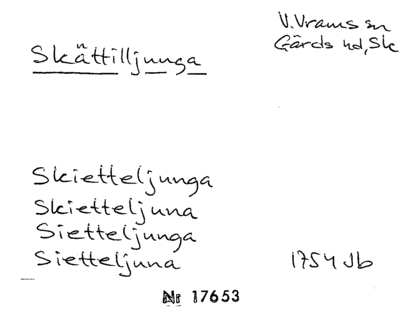 V. Vrams sn
Gärds hd, Sk
Skättilljunga
Skietteljunga
Skietteljuna
Sietteljunga
Sietteljuna
1754 Jb
Nr 17653